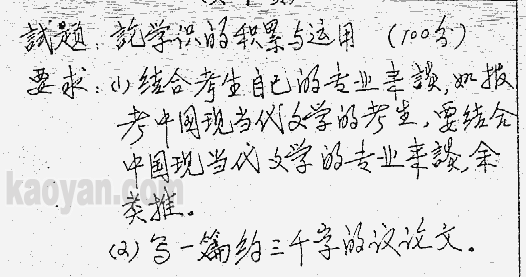 試题：說学识的积累与运用 (100分)
要求：(1)结合考生自己的专业来談，如报
考中国现当代文学的考生，要结合
中国现当代文学的专业来談，余
类推。
kaoyan.com
(2)写一篇约三千字的议论文。